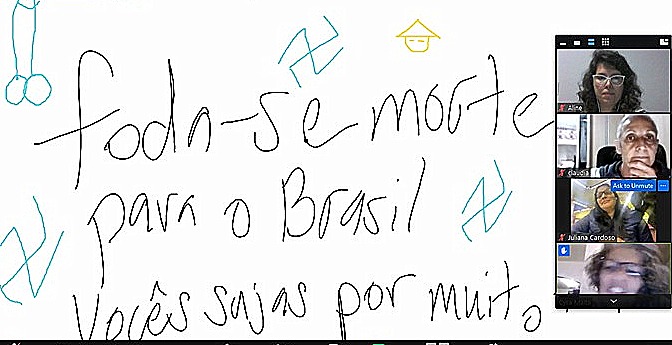 foda-se morte
para o Brasil
Vocês sujas por muito
Aline
claudia
Ask to Unmute
Juliana Cardoso